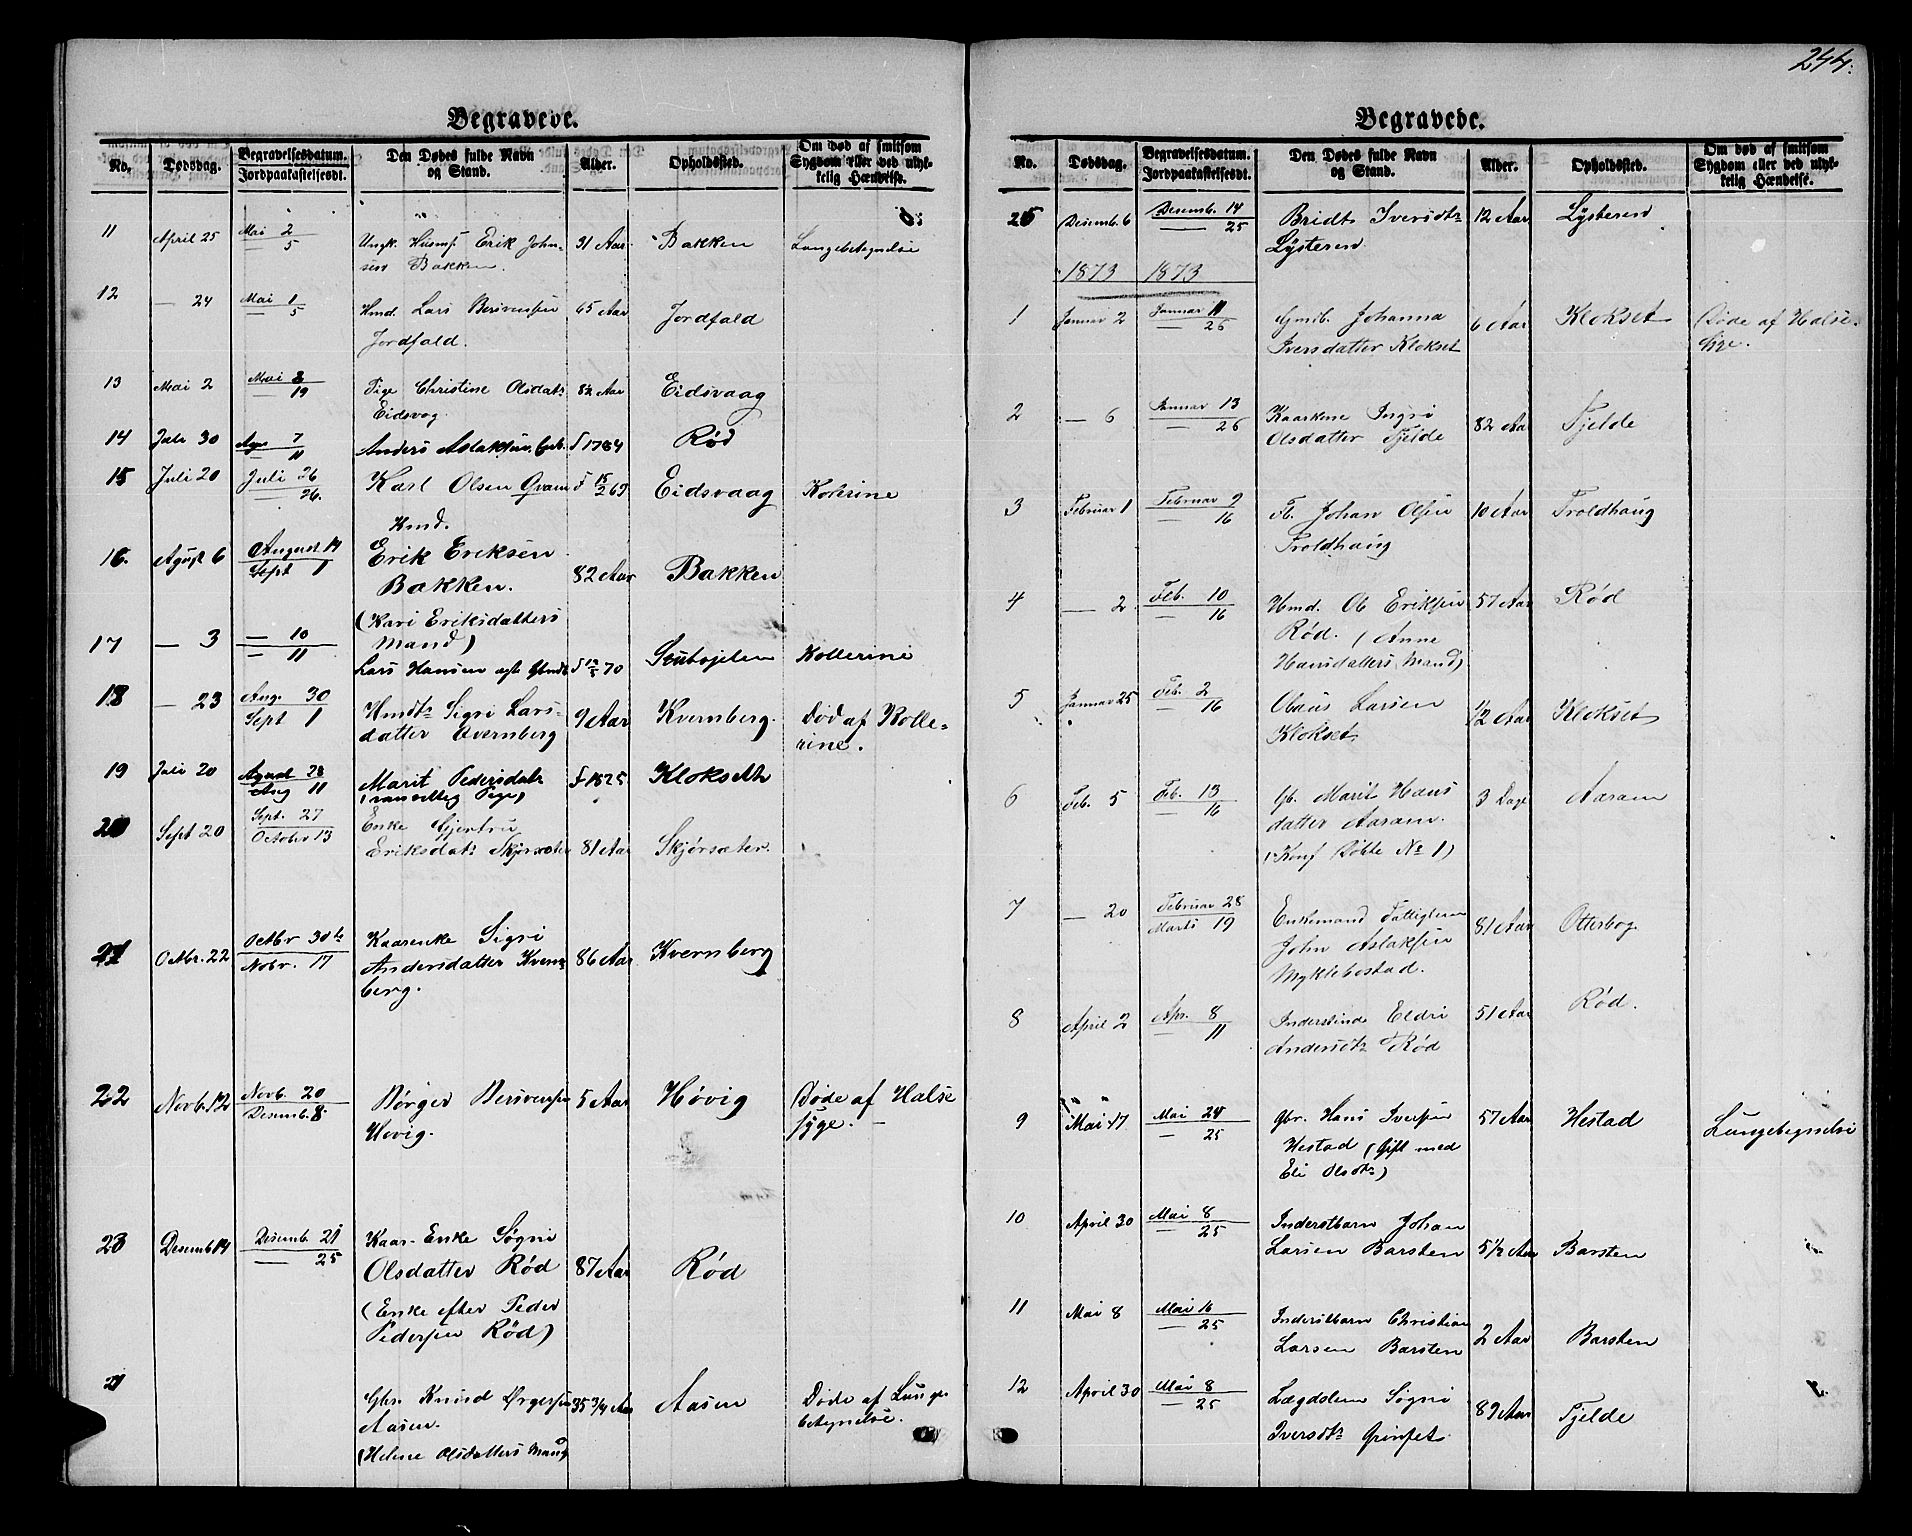 244.
Begravede.
No. Dødsdag. Begravelsesdatum. Jordpaakastelsesdt. Den Dødes fulde Navn og Stand. Alder. Opholdssted. Om død af smitsom Sygdom eller ved ulykkelig Hændelse.
11 April 25 Mai 2 / — 5 Ungk. Husmd Erik John-
sen Bakken. 91 Aar Bakken Lungebetegnelse
12 — 24 Mai 1 / — 5 Hmd. Lars
Jordfald. 65 Aar Jordfald
13 Mai 2 Mai 8 / — 19 Pige Christine Olsdatr
Eidsvog 82 Aar Eidsvaag
14 Juli 30 Agus 7 / — 11 Anders Aslaksen f 1784 Rød
15 Juli 20 Juli 26 / — 26. Karl Olsen Qvam
Hmd. f 15/2 69 Eidsvaag Kolerine
16. Agust 6 August 14 / Sept 1 Erik Eriksen
Bakken.
(Kari Eriksdatters
Mand) 82 Aar Bakken
17 — 3 — 10 / — 11 Lars Hansen f 70 Kollerine
18 — 23 Aug. 30 / Sept 1 Hmdtr Sigri Lars-
datter Qvernberg 9 Aar Kvernberg. Død af Kolle-
rine.
19 Juli 20 Agust 28 / Aug 11 Marit Pedersdatr
(vanvittig Pige) f 1825 Klokseth
20 Sept 20 Sept. 27 / October 13 Enke Gjertru
Eriksdatr Skjørsæter 81 Aar Skjørsæter.
21 Octbr. 22 Octbr 30te / Nobr. 17 Kaarenke Sigri
Andersdatter Kvern-
berg. 86 Aar Kvernberg
22 Novb. 12 Novb. 20 / Desemb. 8 Børger Bersvensen
Høvig. 5 Aar Høvig Døde af Halse
syge. —
23 Desemb 14 Desemb. 21 / — 25 Kaar-Enke Søgni
Olsdatter Rød
(Enke efter Peder
Pedersen Rød) 87 Aar Rød
Gbr. Knud
Aasen.
(Helene Olsdatters Mand) 35 3/4 Aar Aasen Døde af Lunge-
betegnelse.
Begravede.
No. Dødsdag. Begravelsesdatum. Jordpaakastelsesdt. Den Dødes fulde Navn og Stand. Alder. Opholdssted. Om død af smitsom Sygdom eller ved ulykkelig Hændelse.
25 Desemb 6 Desemb. 14 / — 25 Bridt Iversdtr
Lÿsteren 12 Aar Lÿsteren
1873 1873
1 Januar 2 Januar 11 / — 26 Gmb. Johanna
Iversdatter Klokset 6 Aar Klokset Døde af Halse-
sige.
2 — 6 Januar 13 / — 26 Kaarkone Ingri
Olsdatter Fjelde 82 Aar Fjelde
3 Februar 1 Februar 9 / — 16 Fb. Johan Olsen
Troldhaug 10 Aar Troldhaug
4 — 2 Feb. 10 / — 16 Hmd. Ole Eriksen
Rød. (Anne
Hansdatters Mand) 57 Aar Rød
5 Januar 25 Feb. 2 / — 16 Olaus Larsen
Klokset 1/2 Aar Klokset
6 Feb. 5 Feb. 13 / — 16 Gb. Marit Hans
datter Aaram.
(Konf Døbte No 1) 3 Dage Aaram
7 — 20 Februar 28 / Marts 19 Enkemand Fattiglem
John Aslaksen
Myklebostad. 81 Aar Otterbog
8 April 2 Apr. 8 / — 11 Inderstinde Eldri
Andersdtr Rød 51 Aar Rød.
9 Mai 17 Mai 24 / — 25 Gbr. Hans Iversen
Hestad (Gift med
Eli Olsdtr) 57 Aar Hestad Lungebegnelse
10 April 30 Mai 8 / — 25 Inderstbarn Johan
Larsen Barsten 5 1/2 Aar Barsten
11 Mai 8 Mai 16 / — 25 Inderstbarn Christian
Larsen Barsten 2 Aar Barsten
12 April 30 Mai 8 / — 25 Lægdslem Søgni
Iversdtr Grinset 89 Aar Fjelde